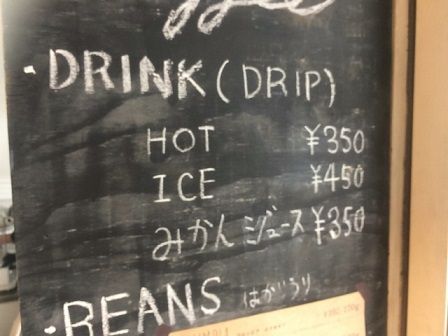 ・DRINK (DRIP)
HOT ¥350
ICE ¥450
みかんジュース ¥350
・BEANS はかりうり